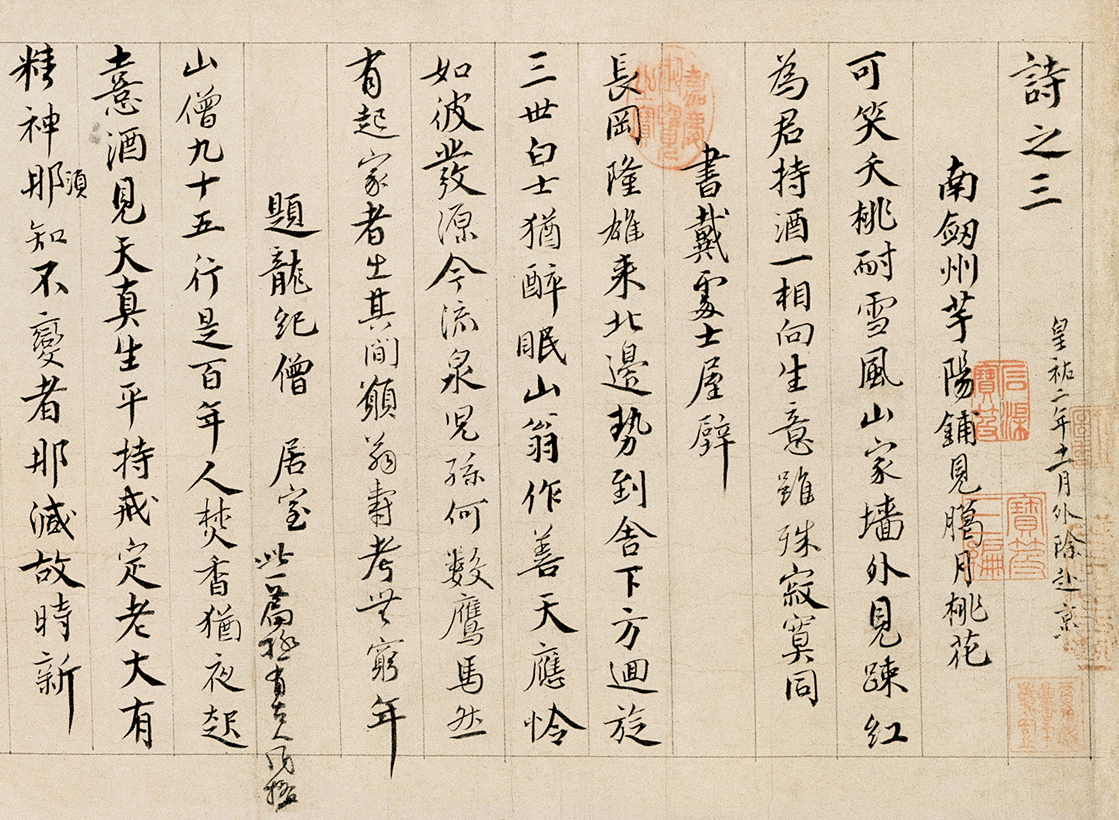 詩之三
皇祐二年十一月外除赴京
南劔州芋陽鋪見臘月桃花
可笑夭桃耐雪風山家墻外見踈紅
為君持酒一相向生意雖殊寂寞同
書戴處士屋壁
長岡隆雄来北邊勢到舎下方迴旋
三世白士猶醉眠山翁作善天應怜
如彼發源今流泉児孫何數鷹馬然
有起家者出其間願翁壽考無窮年
題龍紀僧居室
此一篇極有古人風格
山僧九十五行是百年人焚香猶夜起
憙酒見天真生平持戒定老大有
精神那須知不變者那减故時新